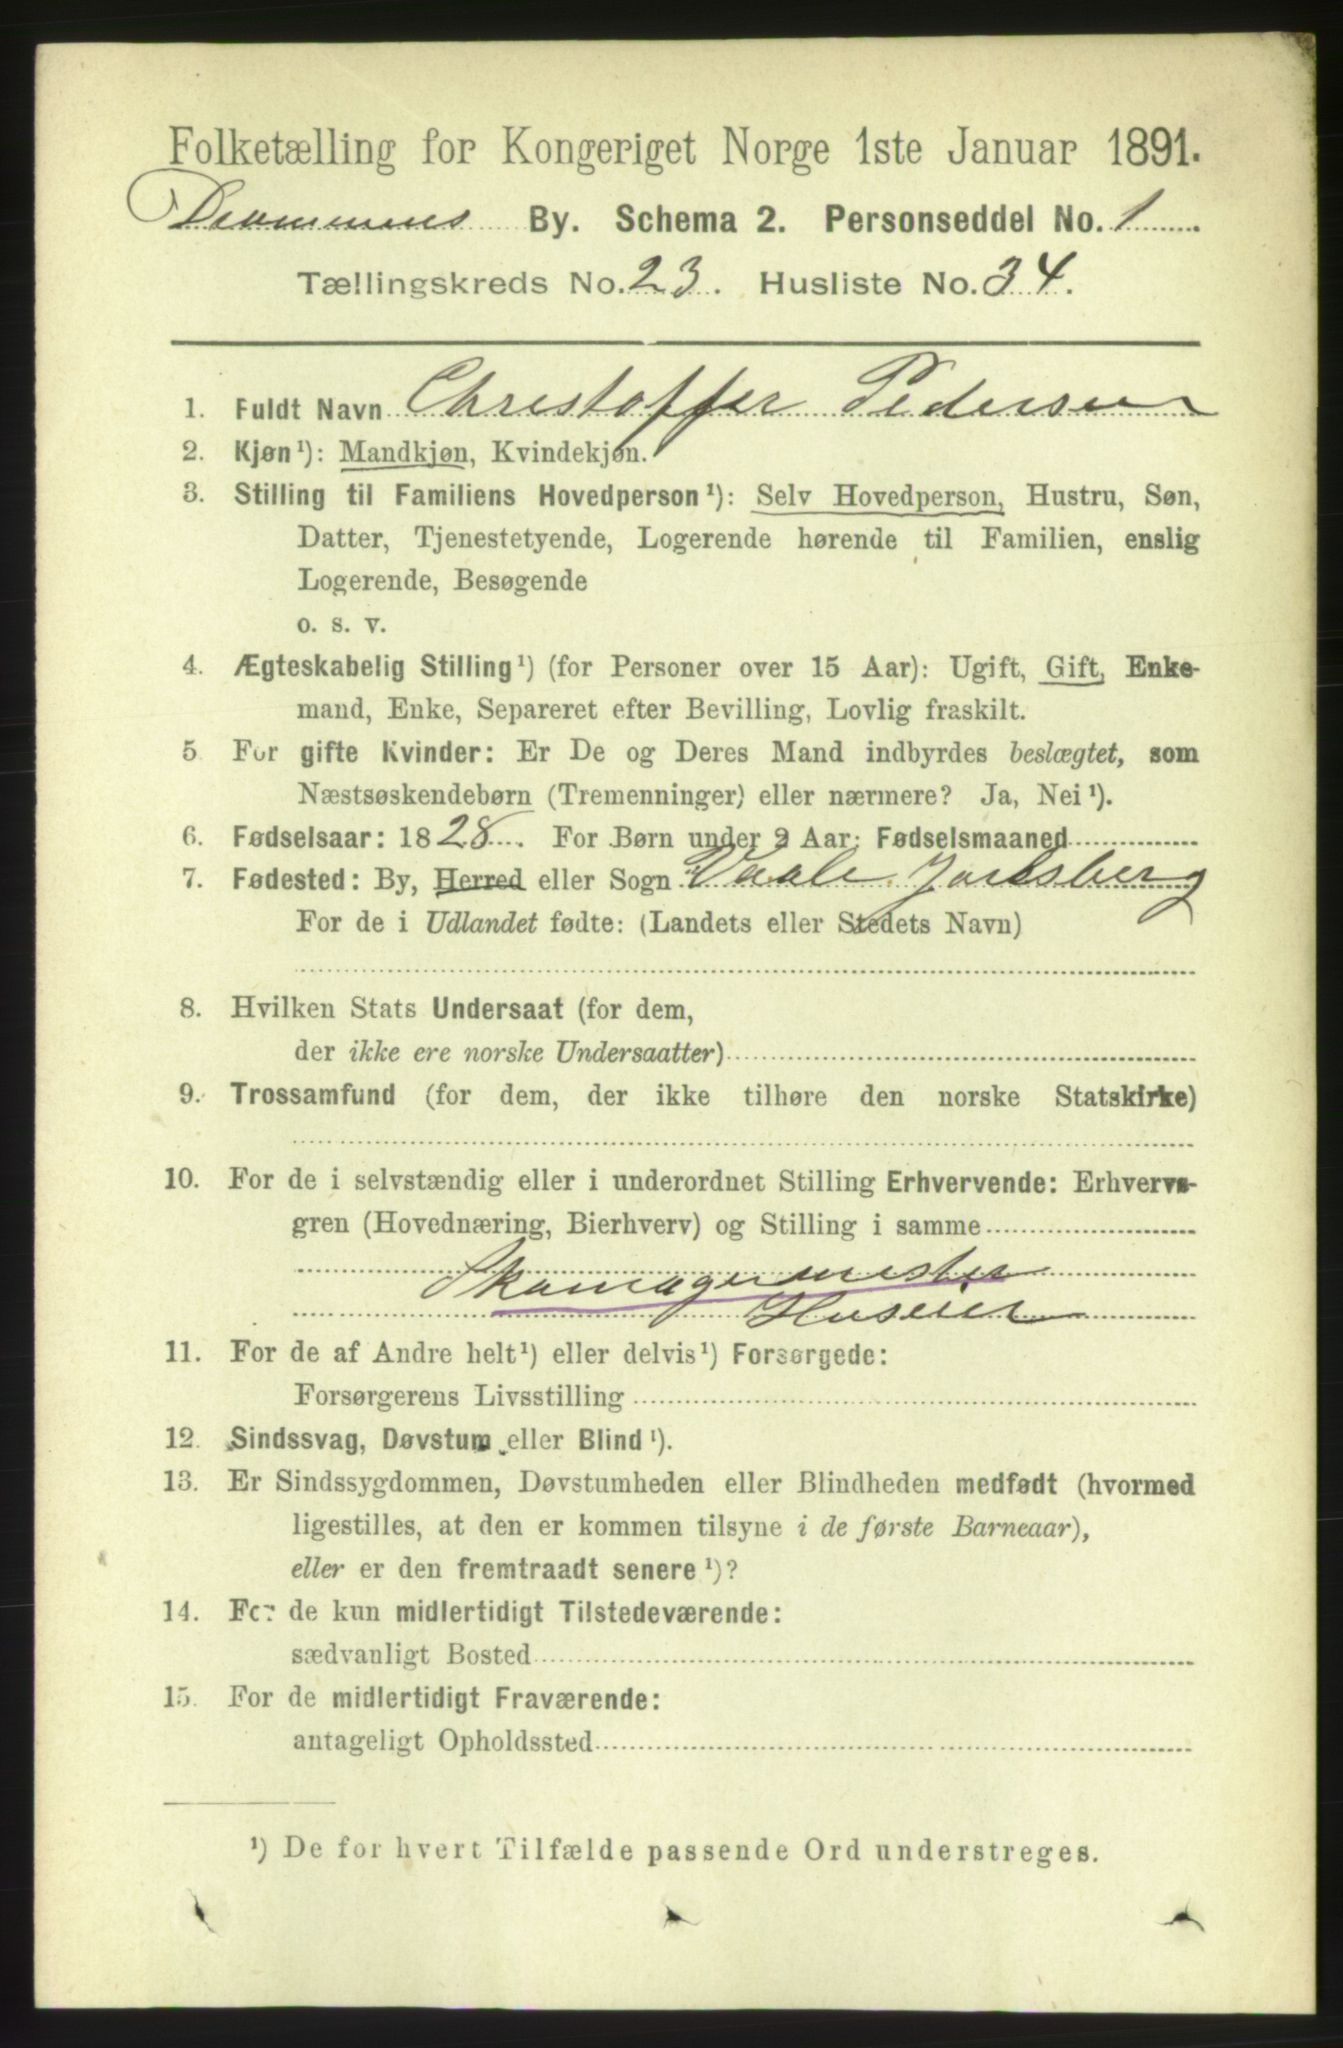 Folketælling for Kongeriget Norge 1ste Januar 1891.
Drammens By. Schema 2. Personseddel No. 1
Tællingskreds No. 23. Husliste No. 34.
1. Fuldt Navn Christoffer Pedersen
2. Kjøn¹): Mandkjøn, Kvindekjøn.
3. Stilling til Familiens Hovedperson¹): Selv Hovedperson, Hustru, Søn,
Datter, Tjenestetyende, Logerende hørende til Familien, enslig
Logerende, Besøgende
o. s. v.
4. Ægteskabelig Stilling¹) (for Personer over 15 Aar): Ugift, Gift, Enke-
mand, Enke, Separeret efter Bevilling, Lovlig fraskilt.
5 For gifte Kvinder: Er De og Deres Mand indbyrdes beslægtet, som
Næstsøskendebørn (Tremenninger) eller nærmere? Ja, Nei¹).
6. Fødselsaar: 1828. For Børn under 2 Aar: Fødselsmaaned
7. Fødested: By, Herred eller Sogn Vaale Jarlsberg
For de i Udlandet fødte: (Landets eller Stedets Navn)
8. Hvilken Stats Undersaat (for dem,
der ikke ere norske Undersaatter)
9. Trossamfund (for dem, der ikke tilhøre den norske Statskirke)
10. For de i selvstændig eller i underordnet Stilling Erhvervende: Erhvervs-
gren (Hovednæring, Bierhverv) og Stilling i samme
Skomagermester
Huseier
11. For de af Andre helt¹) eller delvis¹) Forsørgede:
Forsørgerens Livsstilling
12. Sindssvag, Døvstum eller Blind¹).
13. Er Sindssygdommen, Døvstumheden eller Blindheden medfødt (hvormed
ligestilles, at den er kommen tilsyne i de første Barneaar),
eller er den fremtraadt senere¹)?
14. For de kun midlertidigt Tilstedeværende:
sædvanligt Bosted
15. For de midlertidigt Fraværende:
antageligt Opholdssted
¹) De for hvert Tilfælde passende Ord understreges.